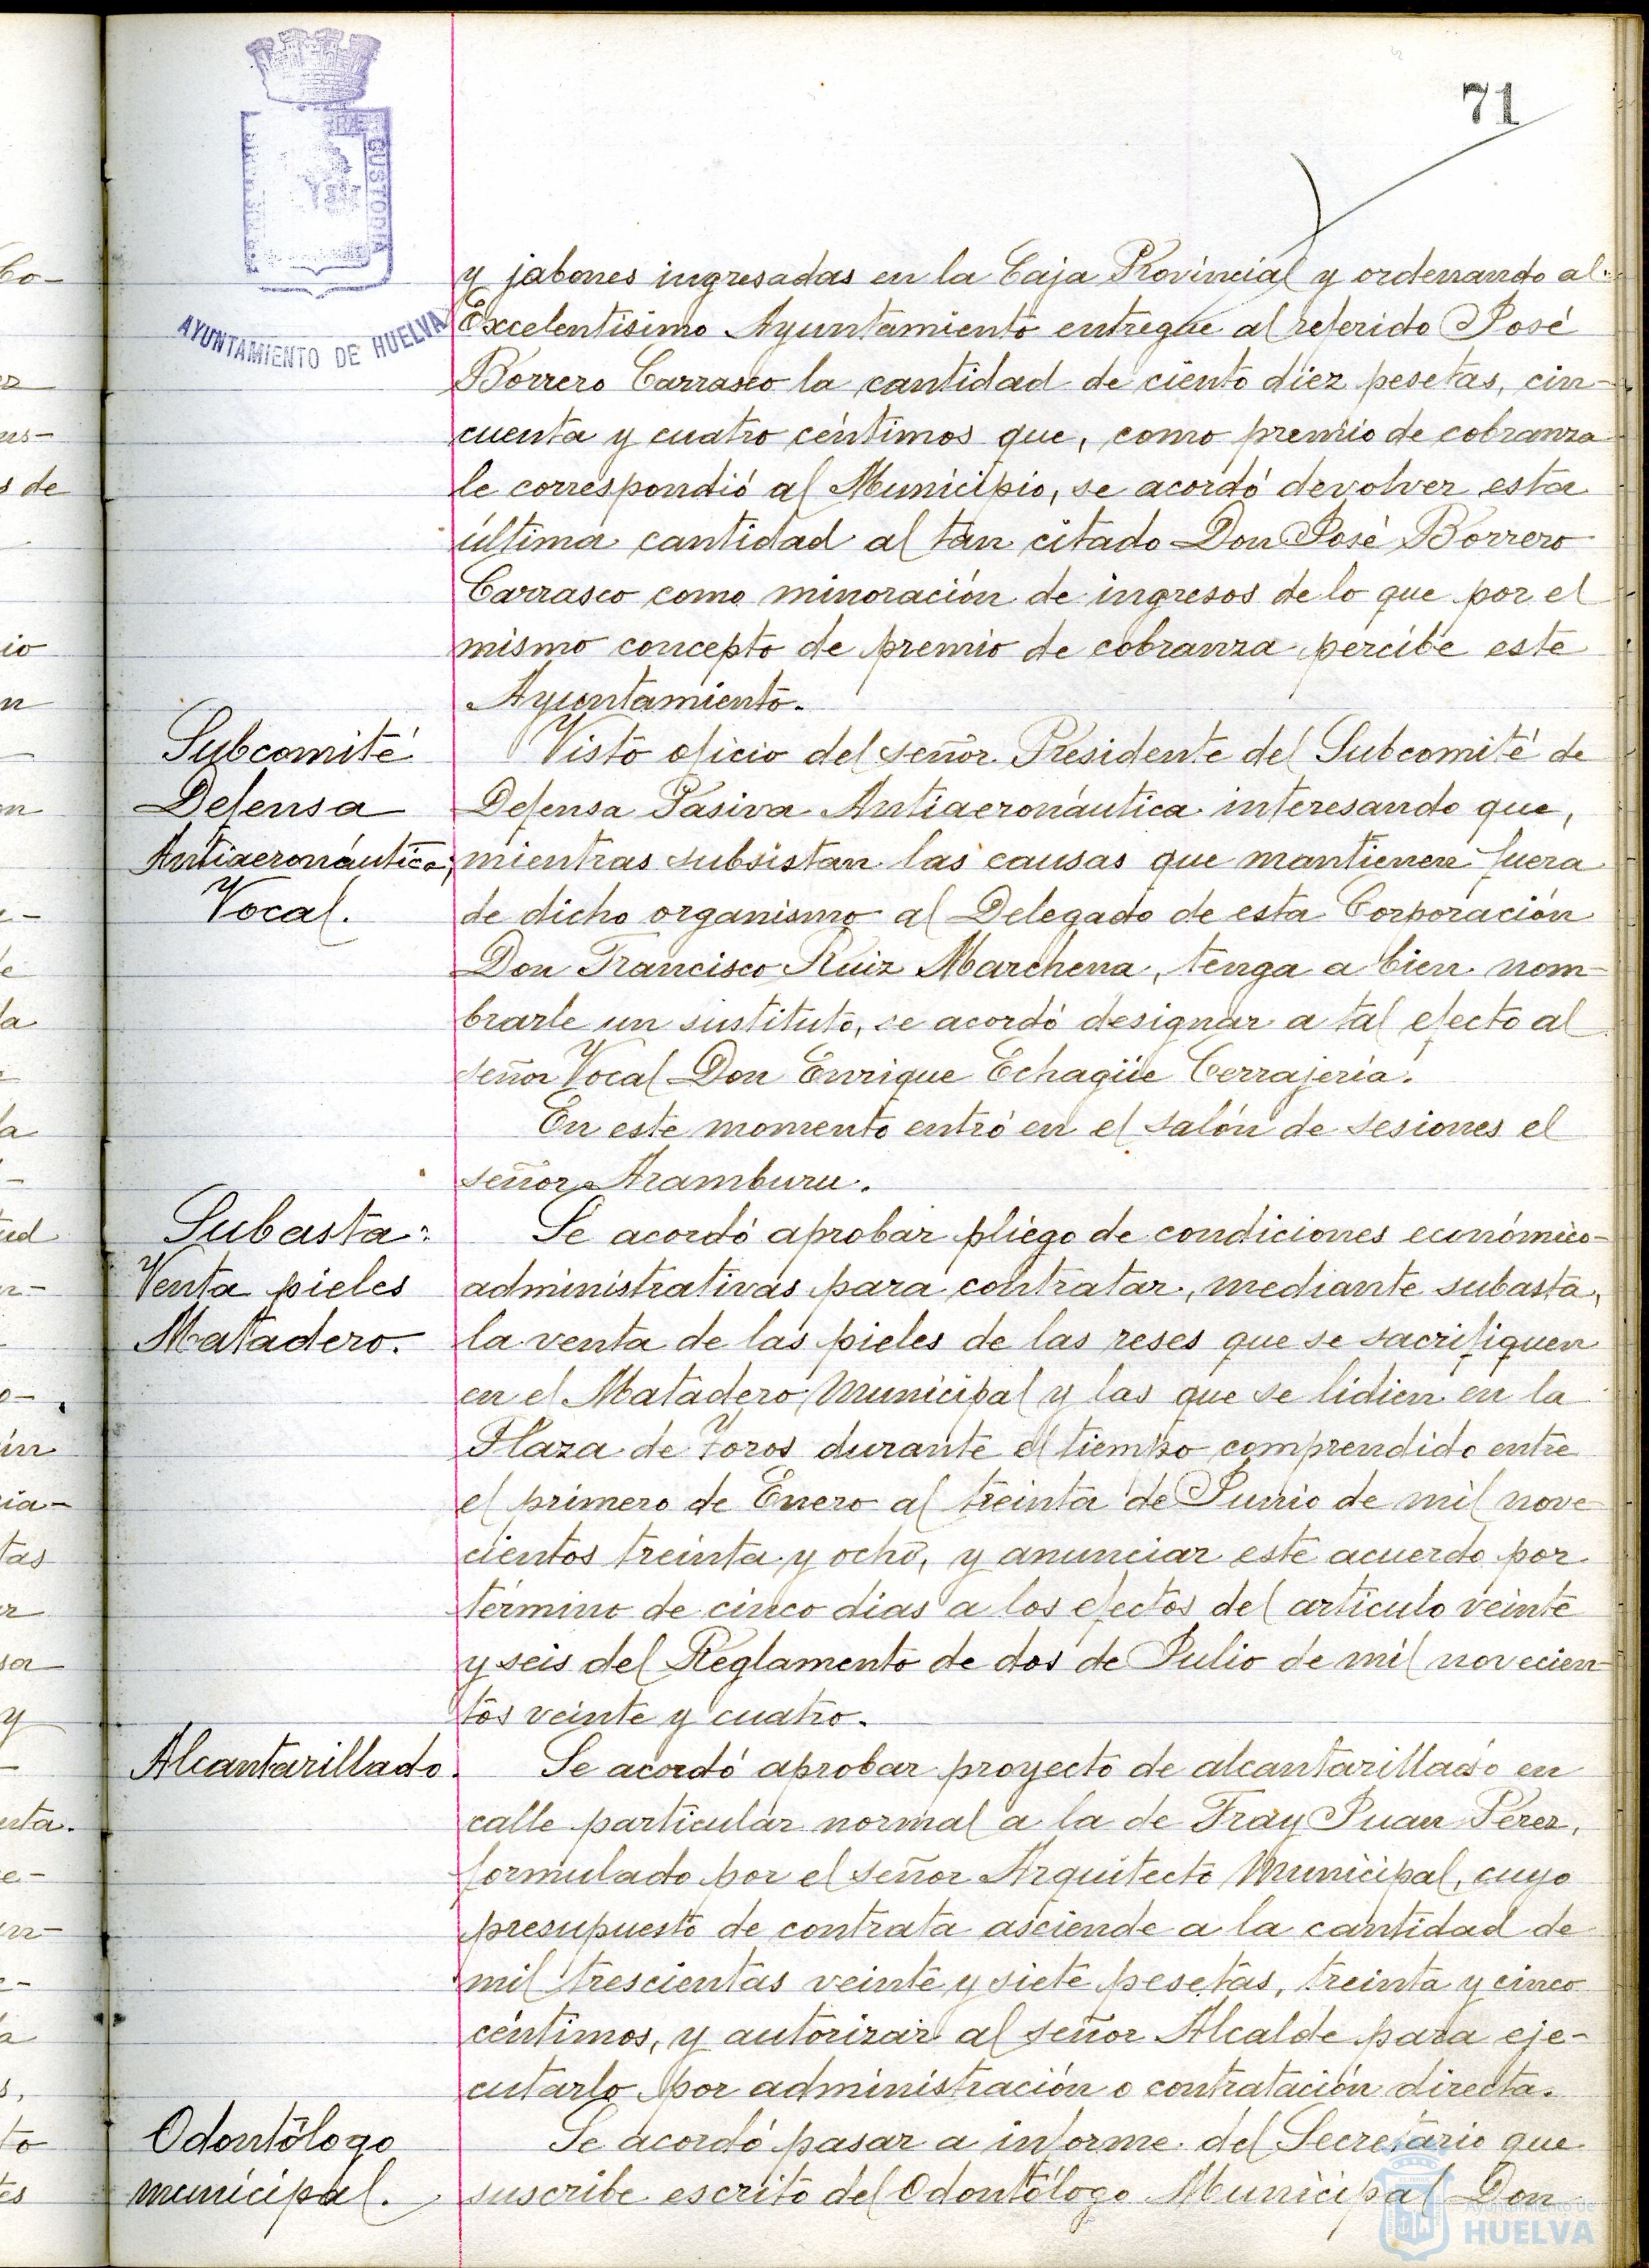 71
CUSTODIA
AYUNTAMIENTO DE HUELVA
y jabones ingresadas en la Caja Provincial y ordenando al
Excelentisimo Ayuntamiento entregue al referido José
Borrero Carrasco la cantidad de ciento diez pesetas, cin-
cuenta y cuatro céntimos que, como premio de cobranza
le correspondió al Municipio, se acordó devolver esta
última cantidad al tan citado Don José Borrero
Carrasco como minoración de ingresos de lo que por el
mismo concepto de premio de cobranza percibe este
Ayuntamiento.
Subcomité
Defensa
Antiaeronáutica;
Vocal.
Visto oficio del señor Presidente del Subcomité de
Defensa Pasiva Antiaeronáutica interesando que,
mientras subsistan las causas que mantienen fuera
de dicho organismo al Delegado de esta Corporación
Don Francisco Ruiz Marchena, tenga a bien nom-
brarle un sustituto, se acordó designar a tal efecto al
señor Vocal Don Enrique Echagüe Cerrajería.
En este momento entró en el salón de sesiones el
señor Aramburu.
Subasta:
Venta pieles
Matadero.
Se acordó aprobar pliego de condiciones económico-
administrativas para contratar, mediante subasta,
la venta de las pieles de las reses que se sacrifiquen
en el Matadero Municipal y las que se lidien en la
Plaza de Toros durante el tiempo comprendido entre
el primero de Enero al treinta de Junio de mil nove
cientos treinta y ocho, y anunciar este acuerdo por
término de cinco dias a los efectos del articulo veinte
y seis del Reglamento de dos de Julio de mil novecien-
tos veinte y cuatro.
Alcantarillado.
Se acordó aprobar proyecto de alcantarillado en
calle particular normal a la de Fray Juan Pérez,
formulado por el señor Arquitecto Municipal, cuyo
presupuesto de contrata asciende a la cantidad de
mil trescientas veinte y siete pesetas, treinta y cinco
céntimos, y autorizar al señor Alcalde para eje-
cutarlo por administración o contratación directa.
Odontólogo
municipal.
Se acordó pasar a informe del Secretario que
suscribe escrito del Odontólogo Municipal Don
Ayuntamiento de
HUELVA